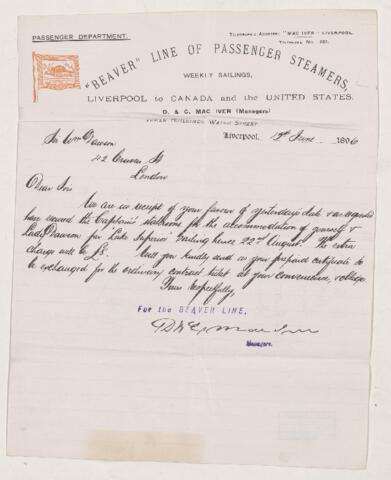 PASSENGER DEPARTMENT.
TELEGRAPHIC ADDRESS: "MAC IVER - LIVERPOOL.
TELEPHONE No.
"BEAVER" LINE OF PASSENGER STEAMERS,
WEEKLY SAILINGS,
LIVERPOOL to CANADA and the UNITED STATES.
D. & C. MAC IVER (Managers)
WATER STREET
Liverpool, 12th June 1896
Sir Wm Dawson
42 Craven St
London
Dear Sir
We are in receipt of your favour of yesterday's date & as requested
have secured the Captain's stateroom for the accommodation of yourself &
Lady Dawson per "Lake Superior" sailing hence 22nd August. The extra
charge will be £5. Will you kindly send us your prepaid certificate to
be exchanged for the ordinary contract ticket at your convenience, & oblige.
Yours respectfully,
For the BEAVER LINE.
D & C Mac Iver
Managers.